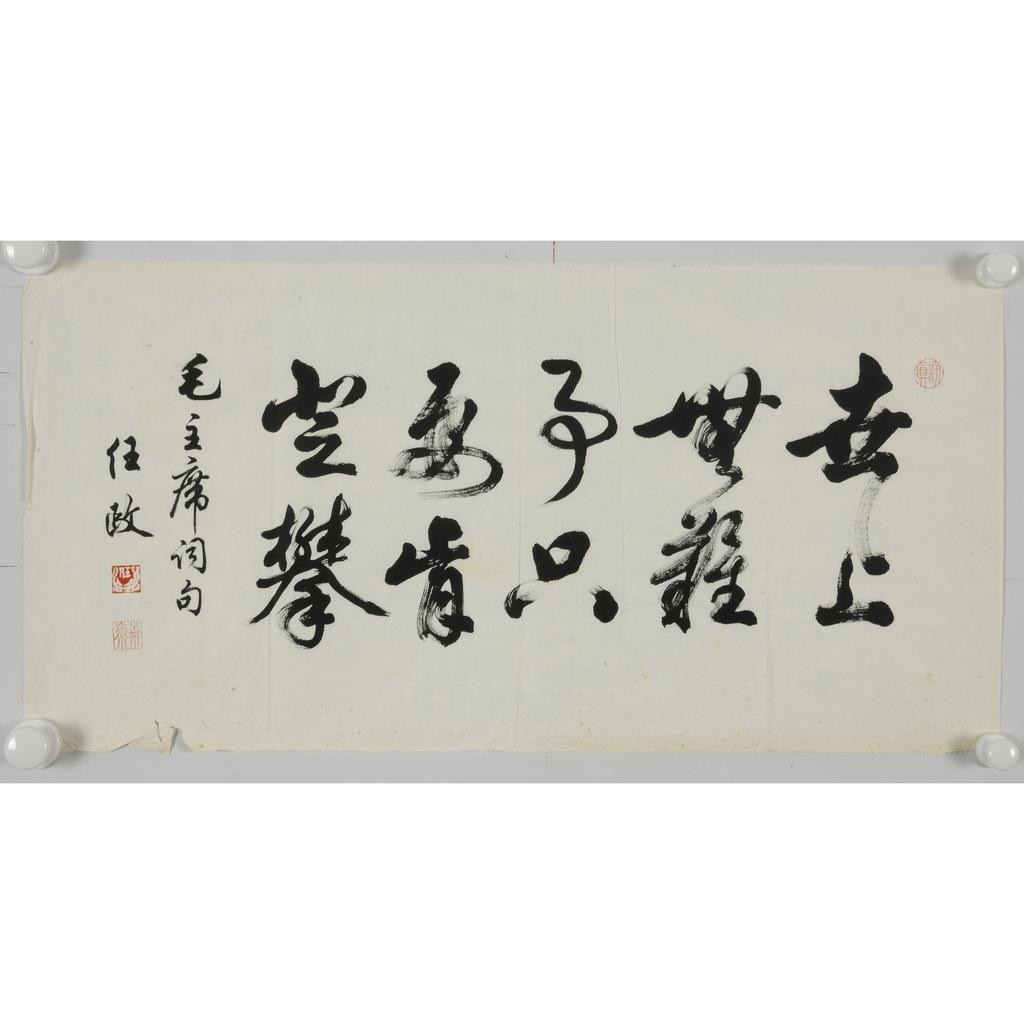 世上
無難
事只
要肯
登攀
毛主席詞句
任政